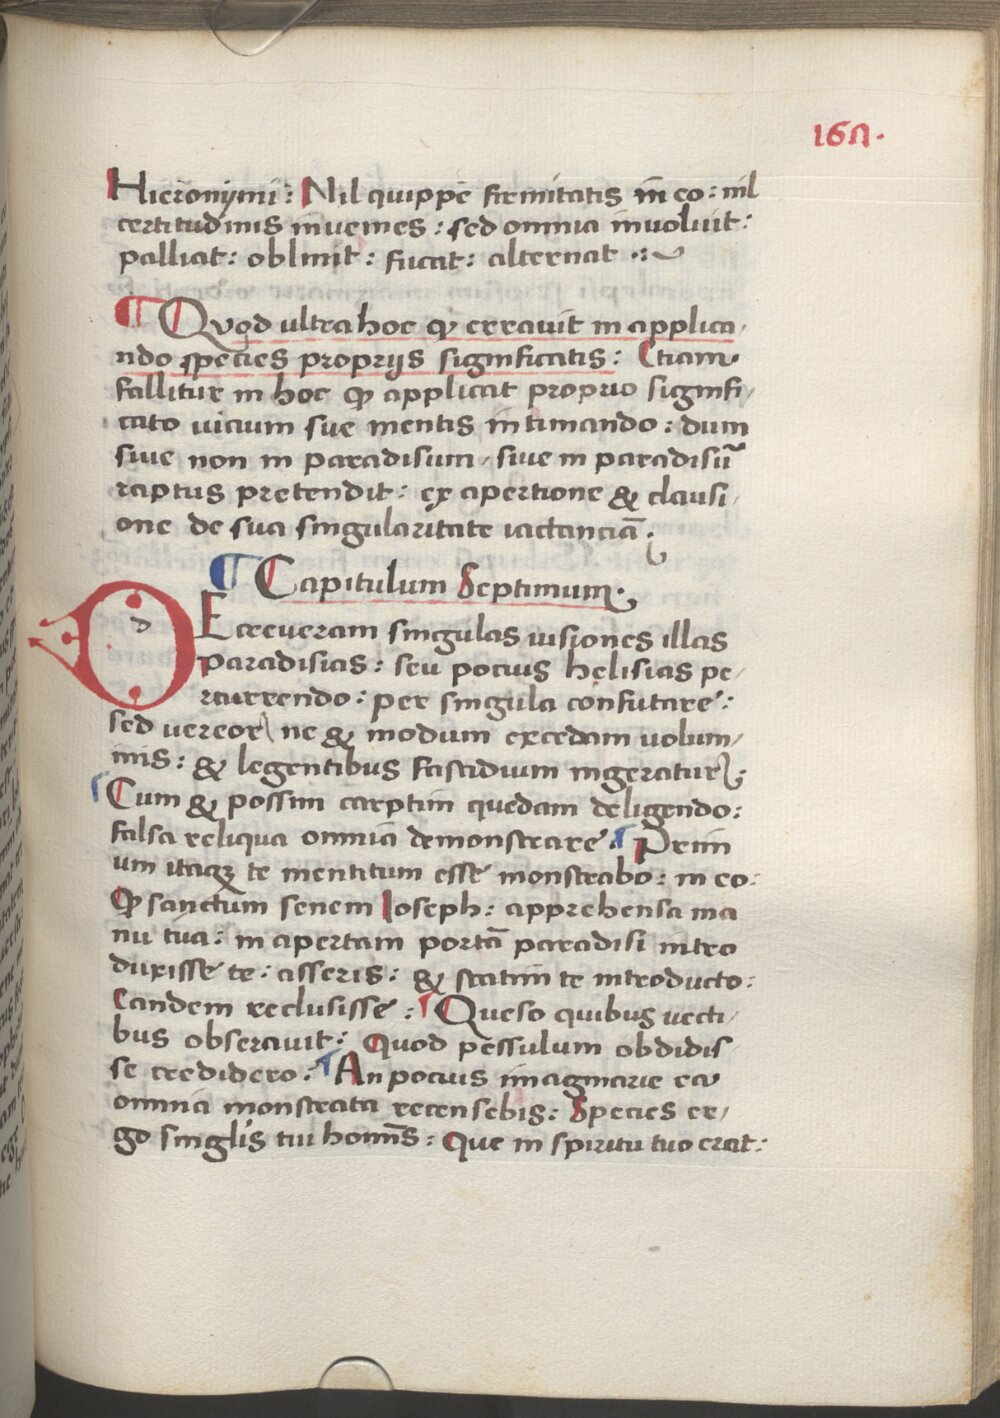 167.
Hieronymi: Nil quippe firmitatis in eo: nil
certitudinis invenies: sed omnia involuit:
palliat: oblinit: fucat: alternat.
¶ Quod ultra hoc ꝙ erravit in applica,
ndo species proprijs significatis: Etiam
fallitur in hoc ꝙ applicat proprio signifi,
cato uicium sue mentis intimando: dum
siue non in paradisum, siue in paradisū
raptus pretendit: ex apertione & clausi,
one de sua singularitate iactanciā:
¶ Capitulum Septimum.
d Ecreueram singulas uisiones illas
paradisias: seu pocius helisias pe,
rcurrendo: per singula confutare:
sed uereor ne & modum excedam uolum,
inis: & legentibus fastidium ingeratur:
Cum & possim carptim quedam deligendo:
falsa reliqua omnia demonstrare ¶ Prim
um itaqꝫ te mentitum esse monstrabo: in eo:
ꝙ sanctum senem Ioseph: apprehensa ma
nu tua: in apertam portā paradisi intro
duxisse te: asseris: & statim te introducto:
tandem reclusisse: ¶ Queso quibus uecti,
bus obserauit: Quod pessulum obdidis
se credidero: ¶ An pocius imaginarie ea
omnia monstrata recensebis: Species er,
go singl'is tui homīs: Que in spiritu tuo erat: